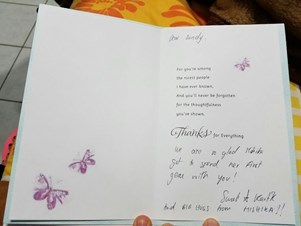 Dear Sandy
For you're among
the nicest people
I have ever known,
And you'll never be forgotten
for the thoughtfulness
you've shown.
Thanks for everything
We are so glad Mishika
got to spend her first
year with you!
And BIG HUGS from MISHIKA!!